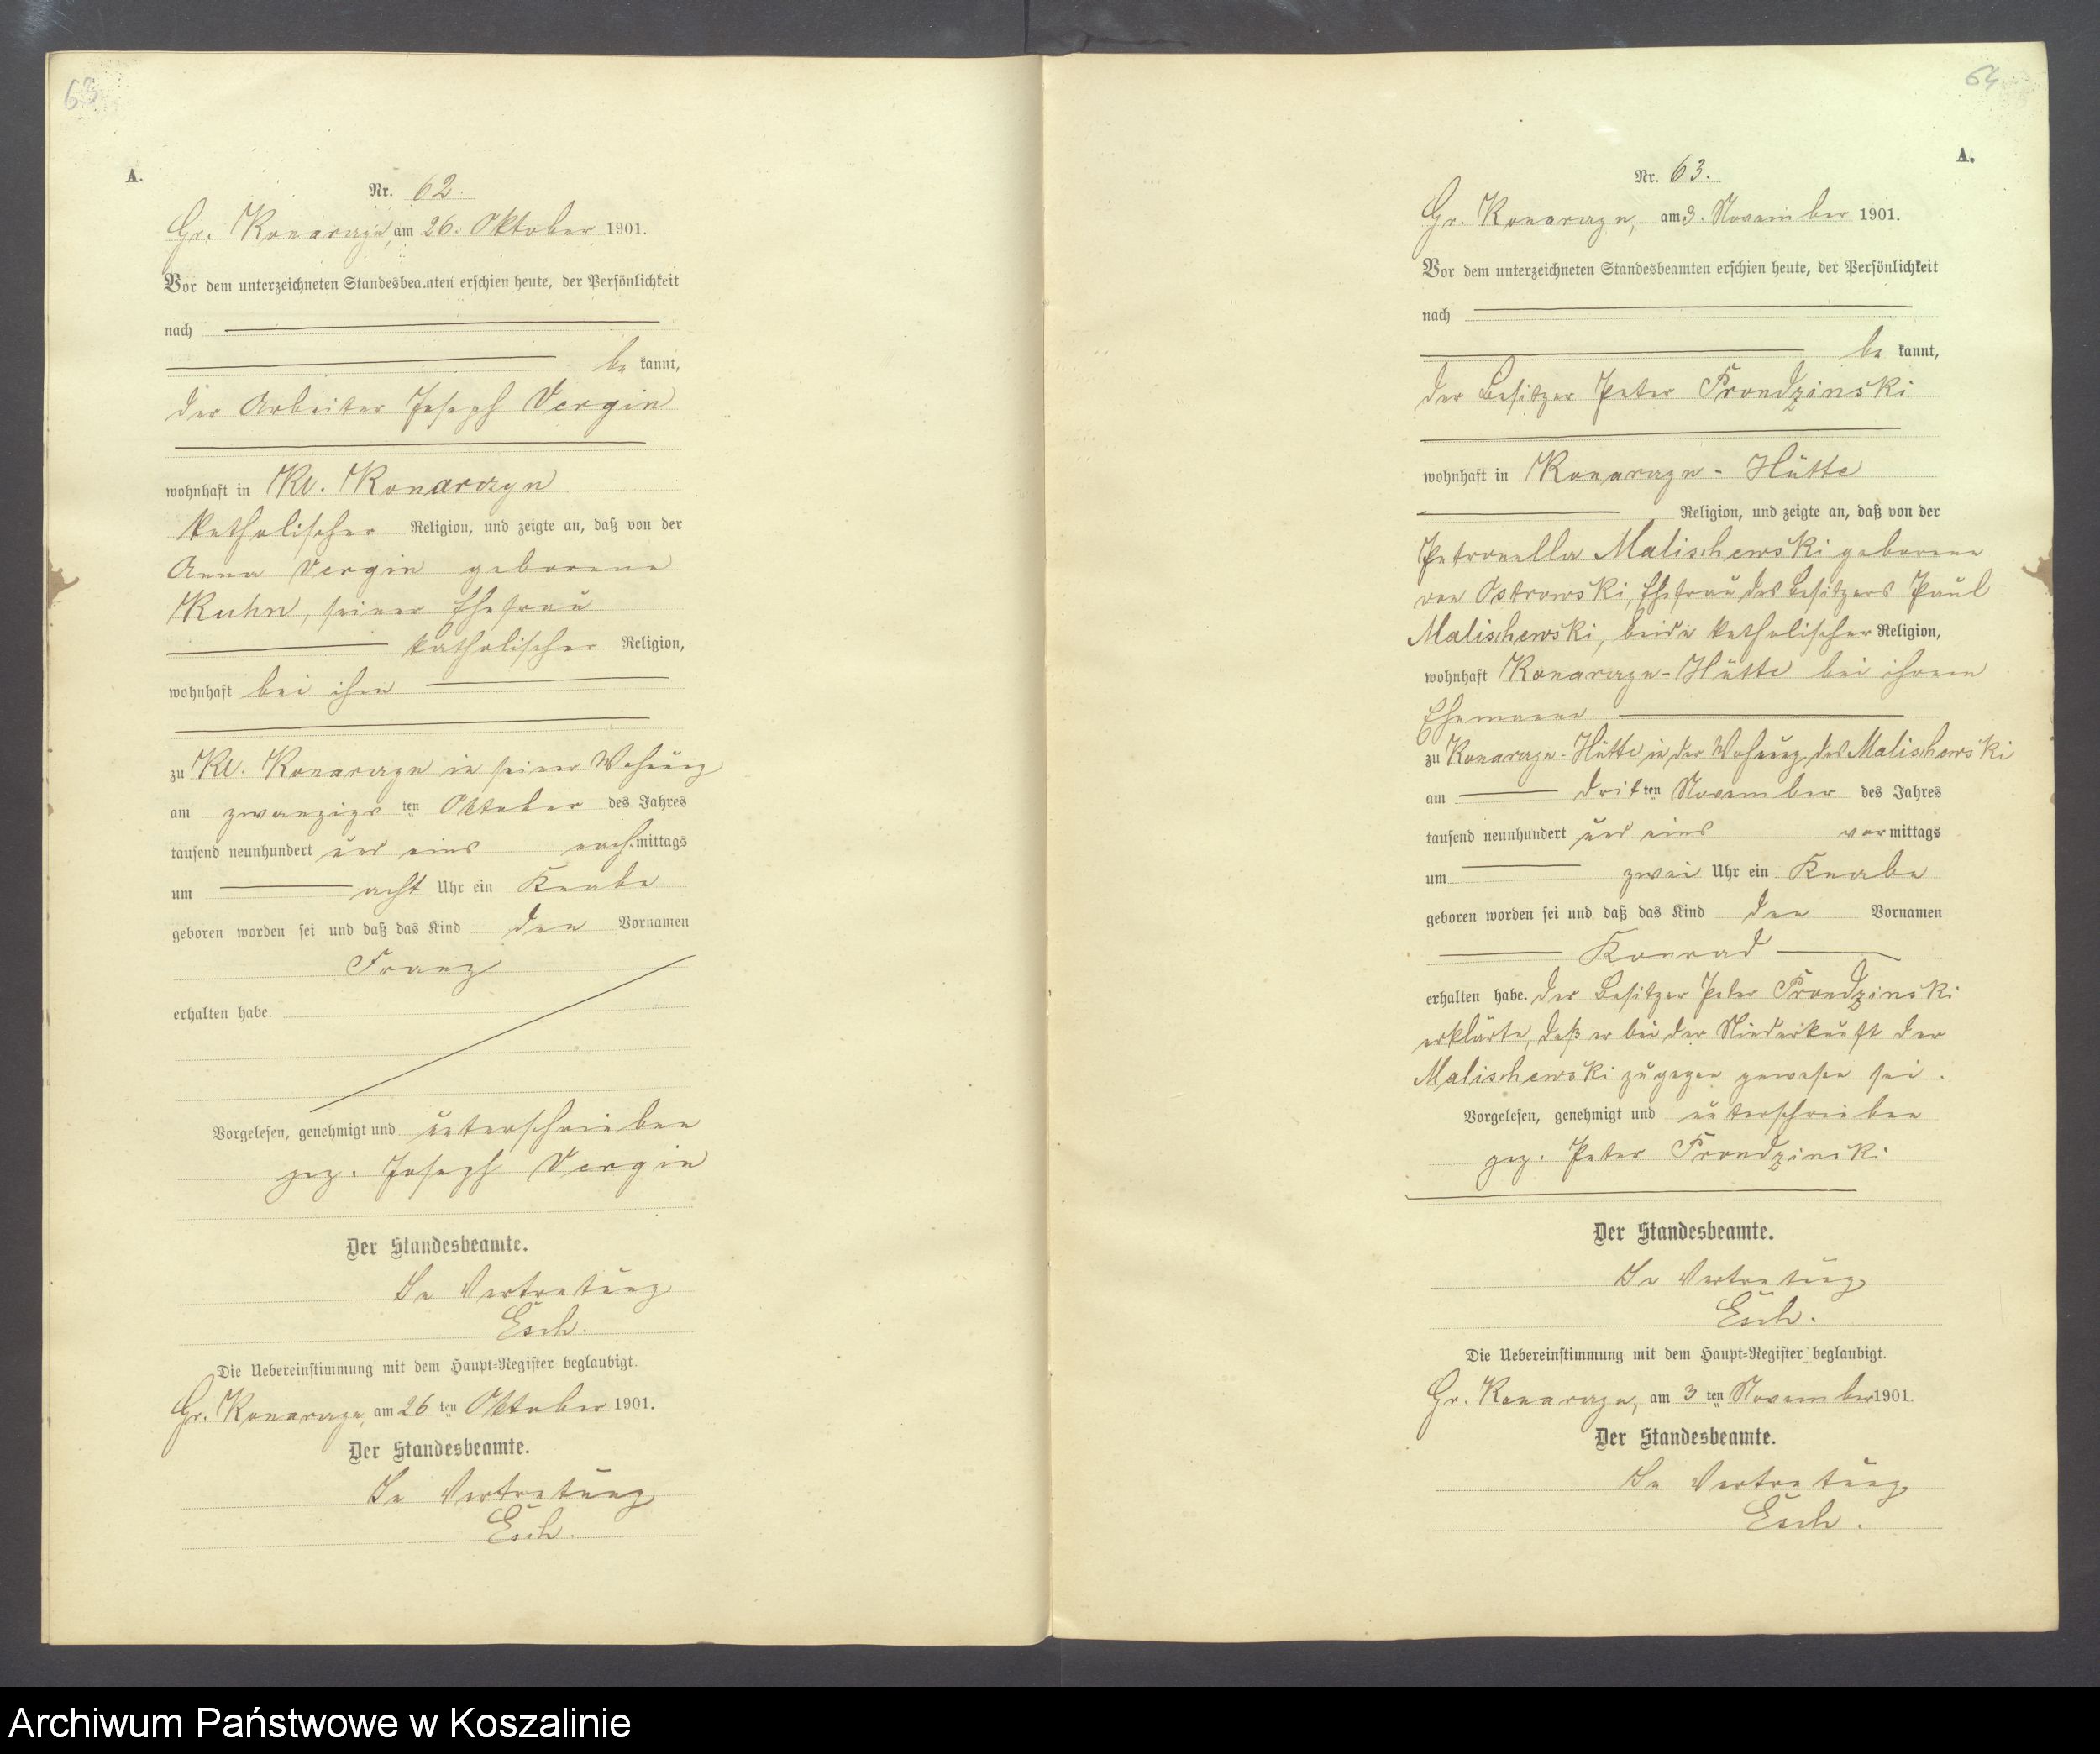 63
A.
Nr. 62.
Gr. Konarczyn, am 26. Oktober 1901.
Vor dem unterzeichneten Standesbeamten erschien heute, der Persönlichkeit
nach
be kannt,
der Arbeiter Joseph Vergin
wohnhaft in Kl. Konarczyn
katholischer Religion, und zeigte an, daß von der
Anna Vergin geborene
Kuhn, seiner Ehefrau
katholischer Religion,
wohnhaft bei ihm
zu Kl. Konarczyn in seiner Wohnung
am zwanzigs ten Oktober des Jahres
tausend neunhundert und eins nach mittags
um acht Uhr ein Knabe
geboren worden sei und daß das Kind den Vornamen
Franz
erhalten habe.
Vorgelesen, genehmigt und unterschrieben
gez. Joseph Vergin
Der Standesbeamte.
In Vertretung
Esch.
Die Uebereinstimmung mit dem Haupt-Register beglaubigt.
Gr. Konarczyn, am 26 ten Oktober 1901.
Der Standesbeamte.
In Vertretung
Esch.
64
A.
Nr. 63.
Gr. Konarczyn, am 3. November 1901.
Vor dem unterzeichneten Standesbeamten erschien heute, der Persönlichkeit
nach
be kannt,
der Besitzer Peter Prondzinski
wohnhaft in Konarczyn-Hütte
Religion, und zeigte an, daß von der
Petronella Malischewski geborene
von Ostrowski, Ehefrau des Besitzers Paul
Malischewski, beide katholischer Religion,
wohnhaft Konarczyn-Hütte bei ihrem
Ehemanne
zu Konarczyn-Hütte in der Wohnung des Malischewski
am drit ten November des Jahres
tausend neunhundert und eins vor mittags
um zwei Uhr ein Knabe
geboren worden sei und daß das Kind den Vornamen
Konrad
erhalten habe. Der Besitzer Peter Prondzinski
erklärte, daß er bei der Niederkunft der
Malischewski zugegen gewesen sei.
Vorgelesen, genehmigt und unterschrieben
gez. Peter Prondzinski
Der Standesbeamte.
In Vertretung
Esch.
Die Uebereinstimmung mit dem Haupt-Register beglaubigt.
Gr. Konarczyn, am 3 ten November 1901.
Der Standesbeamte.
In Vertretung
Esch.
Archiwum Państwowe w Koszalinie